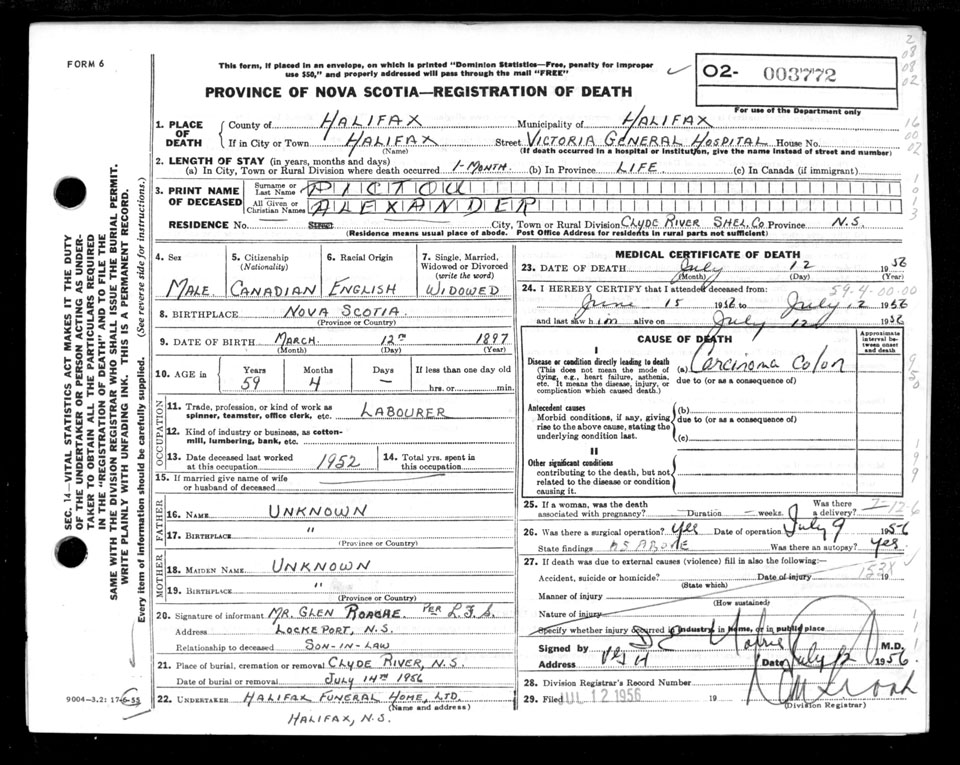 FORM 6
This form, if placed in an envelope, on which is printed "Dominion Statistics—Free, penalty for improper
use $50," and properly addressed will pass through the mail "FREE"
02- 003772
For use of the Department only
PROVINCE OF NOVA SCOTIA—REGISTRATION OF DEATH
1. PLACE OF DEATH
County of HALIFAX Municipality of HALIFAX
If in City or Town HALIFAX Street VICTORIA GENERAL HOSPITAL House No.
(Name) (If death occurred in a hospital or institution, give the name instead of street and number)
2. LENGTH OF STAY (in years, months and days)
(a) In City, Town or Rural Division where death occurred 1-MONTH. (b) In Province LIFE (c) In Canada (if immigrant)
3. PRINT NAME OF DECEASED
Surname or Last Name PICTOU
All Given or Christian Names ALEXANDER
RESIDENCE No. Street City, Town or Rural Division CLYDE RIVER SHEL. CO Province N.S.
(Residence means usual place of abode. Post Office Address for residents in rural parts not sufficient)
4. Sex MALE
5. Citizenship (Nationality) CANADIAN
6. Racial Origin ENGLISH
7. Single, Married, Widowed or Divorced (write the word) WIDOWED
8. BIRTHPLACE NOVA SCOTIA
(Province or Country)
9. DATE OF BIRTH MARCH 12TH 1897
(Month) (Day) (Year)
10. AGE in Years 59 Months 4 Days — If less than one day old
hrs. or min.
OCCUPATION
11. Trade, profession, or kind of work as
spinner, teamster, office clerk, etc. LABOURER
12. Kind of industry or business, as cotton-
mill, lumbering, bank, etc.
13. Date deceased last worked
at this occupation 1952
14. Total yrs. spent in
this occupation
15. If married give name of wife
or husband of deceased
FATHER
16. NAME UNKNOWN
17. BIRTHPLACE "
(Province or Country)
MOTHER
18. MAIDEN NAME UNKNOWN
19. BIRTHPLACE "
(Province or Country)
20. Signature of informant MR. GLEN ROACHE PER L.F.S.
Address LOCKEPORT, N.S.
Relationship to deceased SON-IN-LAW
21. Place of burial, cremation or removal CLYDE RIVER, N.S.
Date of burial or removal JULY 14TH 1956
22. UNDERTAKER HALIFAX FUNERAL HOME, LTD.
(Name and address)
HALIFAX, N.S.
MEDICAL CERTIFICATE OF DEATH
23. DATE OF DEATH July 12 1956
(Month) (Day) (Year)
59-4-00-00
24. I HEREBY CERTIFY that I attended deceased from:
June 15 1956 to July 12 1956
and last saw him alive on July 12 1956
CAUSE OF DEATH
Approximate interval between onset and death
I
Disease or condition directly leading to death
(This does not mean the mode of
dying, e.g., heart failure, asthenia,
etc. It means the disease, injury, or
complication which caused death.)
(a) Carcinoma Colon
due to (or as a consequence of)
Antecedent causes
Morbid conditions, if any, giving
rise to the above cause, stating the
underlying condition last.
(b)
due to (or as a consequence of)
(c)
II
Other significant conditions
contributing to the death, but not
related to the disease or condition
causing it.
25. If a woman, was the death
associated with pregnancy? Duration weeks. Was there a delivery?
26. Was there a surgical operation? yes Date of operation July 9 1956
State findings AS ABOVE Was there an autopsy? yes
27. If death was due to external causes (violence) fill in also the following:—
Accident, suicide or homicide? Date of injury 19
(State which)
153X
Manner of injury
(How sustained)
Nature of injury
Specify whether injury occurred in industry, in home, or in public place
Signed by M.D.
Address VGH Date July 12 1956
28. Division Registrar's Record Number
29. Filed JUL 12 1956 19
(Division Registrar)
SEC. 14—VITAL STATISTICS ACT MAKES IT THE DUTY
OF THE UNDERTAKER OR PERSON ACTING AS UNDER-
TAKER TO OBTAIN ALL THE PARTICULARS REQUIRED
IN THE "REGISTRATION OF DEATH" AND TO FILE THE
SAME WITH THE DIVISION REGISTRAR WHO SHALL ISSUE THE BURIAL PERMIT.
WRITE PLAINLY WITH UNFADING INK. THIS IS A PERMANENT RECORD.
Every item of information should be carefully supplied. (See reverse side for instructions.)
9004—3.2: 17-6-55